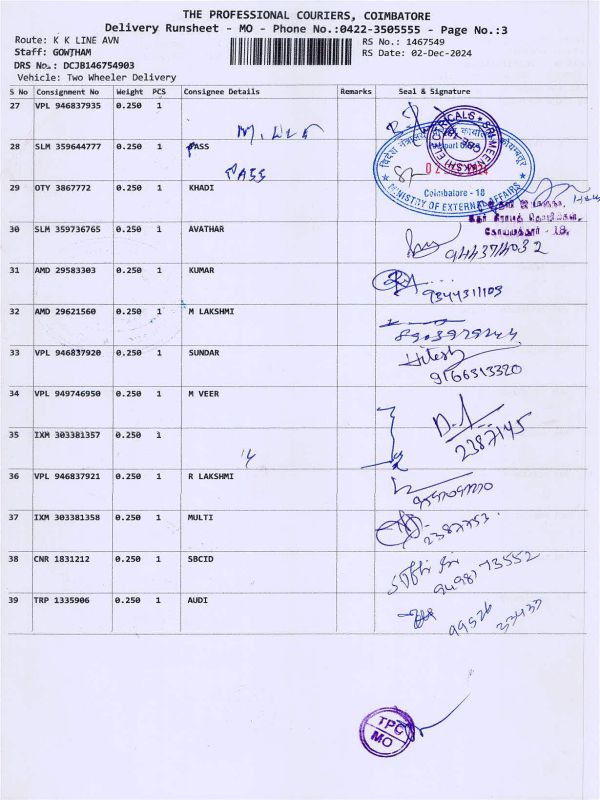 THE PROFESSIONAL COURIERS, COIMBATORE
Delivery Runsheet - MO - Phone No.:0422-3505555 - Page No.:3
Route: K K LINE AVN
RS No.: 1467549
Staff: GOWTHAM
RS Date: 02-Dec-2024
DRS No.: DCJB146754903
Vehicle: Two Wheeler Delivery
S No Consignment No Weight PCS Consignee Details Remarks Seal & Signature
27 VPL 946837935 0.250 1
28 SLM 359644777 0.250 1 PASS
PASS
29 OTY 3867772 0.250 1 KHADI
MINISTRY OF EXTERNAL AFFAIRS
Coimbatore - 18
30 SLM 359736765 0.250 1 AVATHAR
9443714032
31 AMD 29583303 0.250 1 KUMAR
9344311103
32 AMD 29621560 0.250 1 M LAKSHMI
33 VPL 946837920 0.250 1 SUNDAR
Hitesh
9166313320
34 VPL 949746950 0.250 1 M VEER
2387145
35 IXM 303381357 0.250 1
36 VPL 946837921 0.250 1 R LAKSHMI
37 IXM 303381358 0.250 1 MULTI
2387153
38 CNR 1831212 0.250 1 SBCID
9498173552
39 TRP 1335906 0.250 1 AUDI
TPC
MO